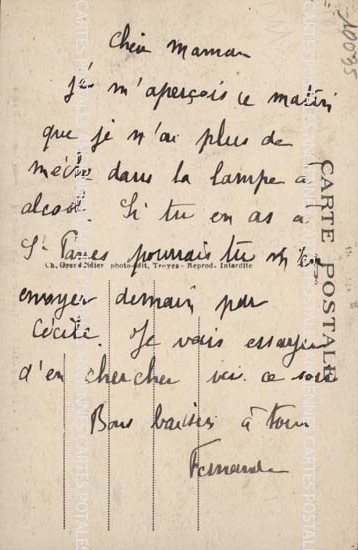 Chère Maman
je m'aperçois ce matin
que je n'ai plus de
mèche dans la lampe à
alcool. Si tu en as à
St Parres pourrais tu m'en
envoyer demain par
Cécile. Je vais essayer
d'en chercher ici ce soir
Bons baisers à tous
Fernande
CARTE POSTALE
Ch. Grand'Idier photo-édit, Troyes - Reprod. Interdite
10095